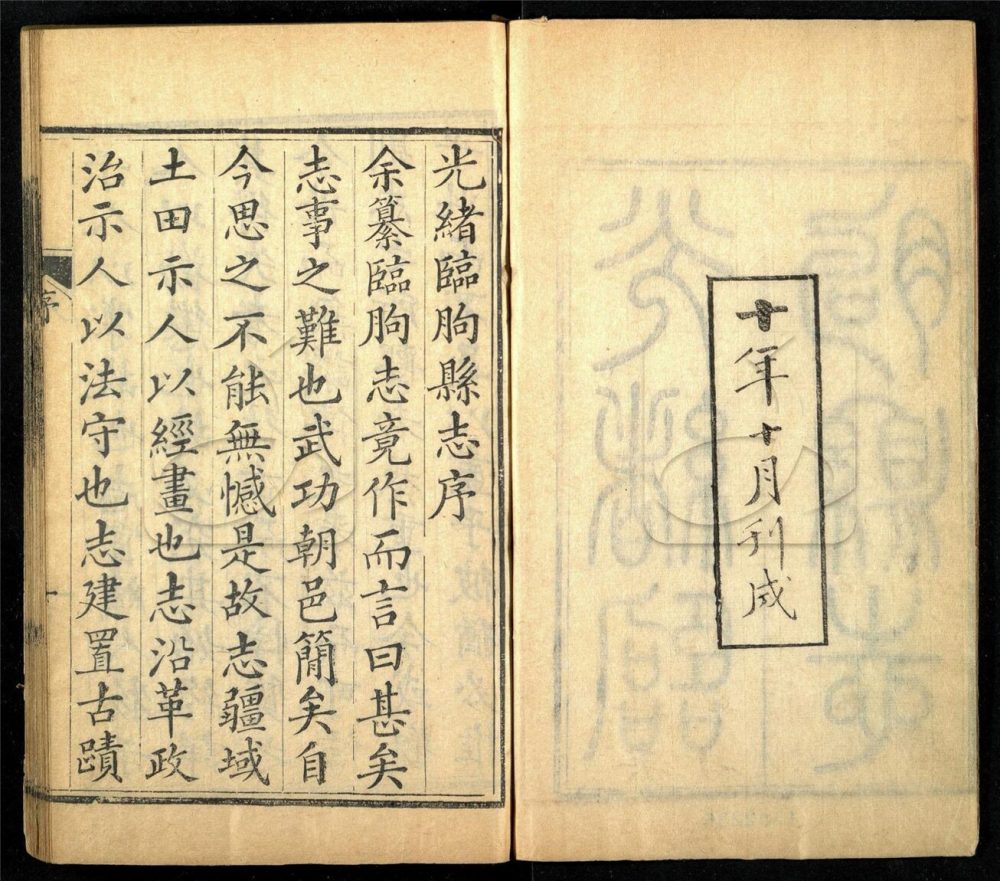 十年十月刊成
光緒臨朐縣志序
余纂臨朐志竟作而言曰甚矣
志事之難也武功朝邑簡矣自
今思之不能無憾是故志疆域
土田示人以經畫也志沿革政
治示人以法守也志建置古蹟
序
一